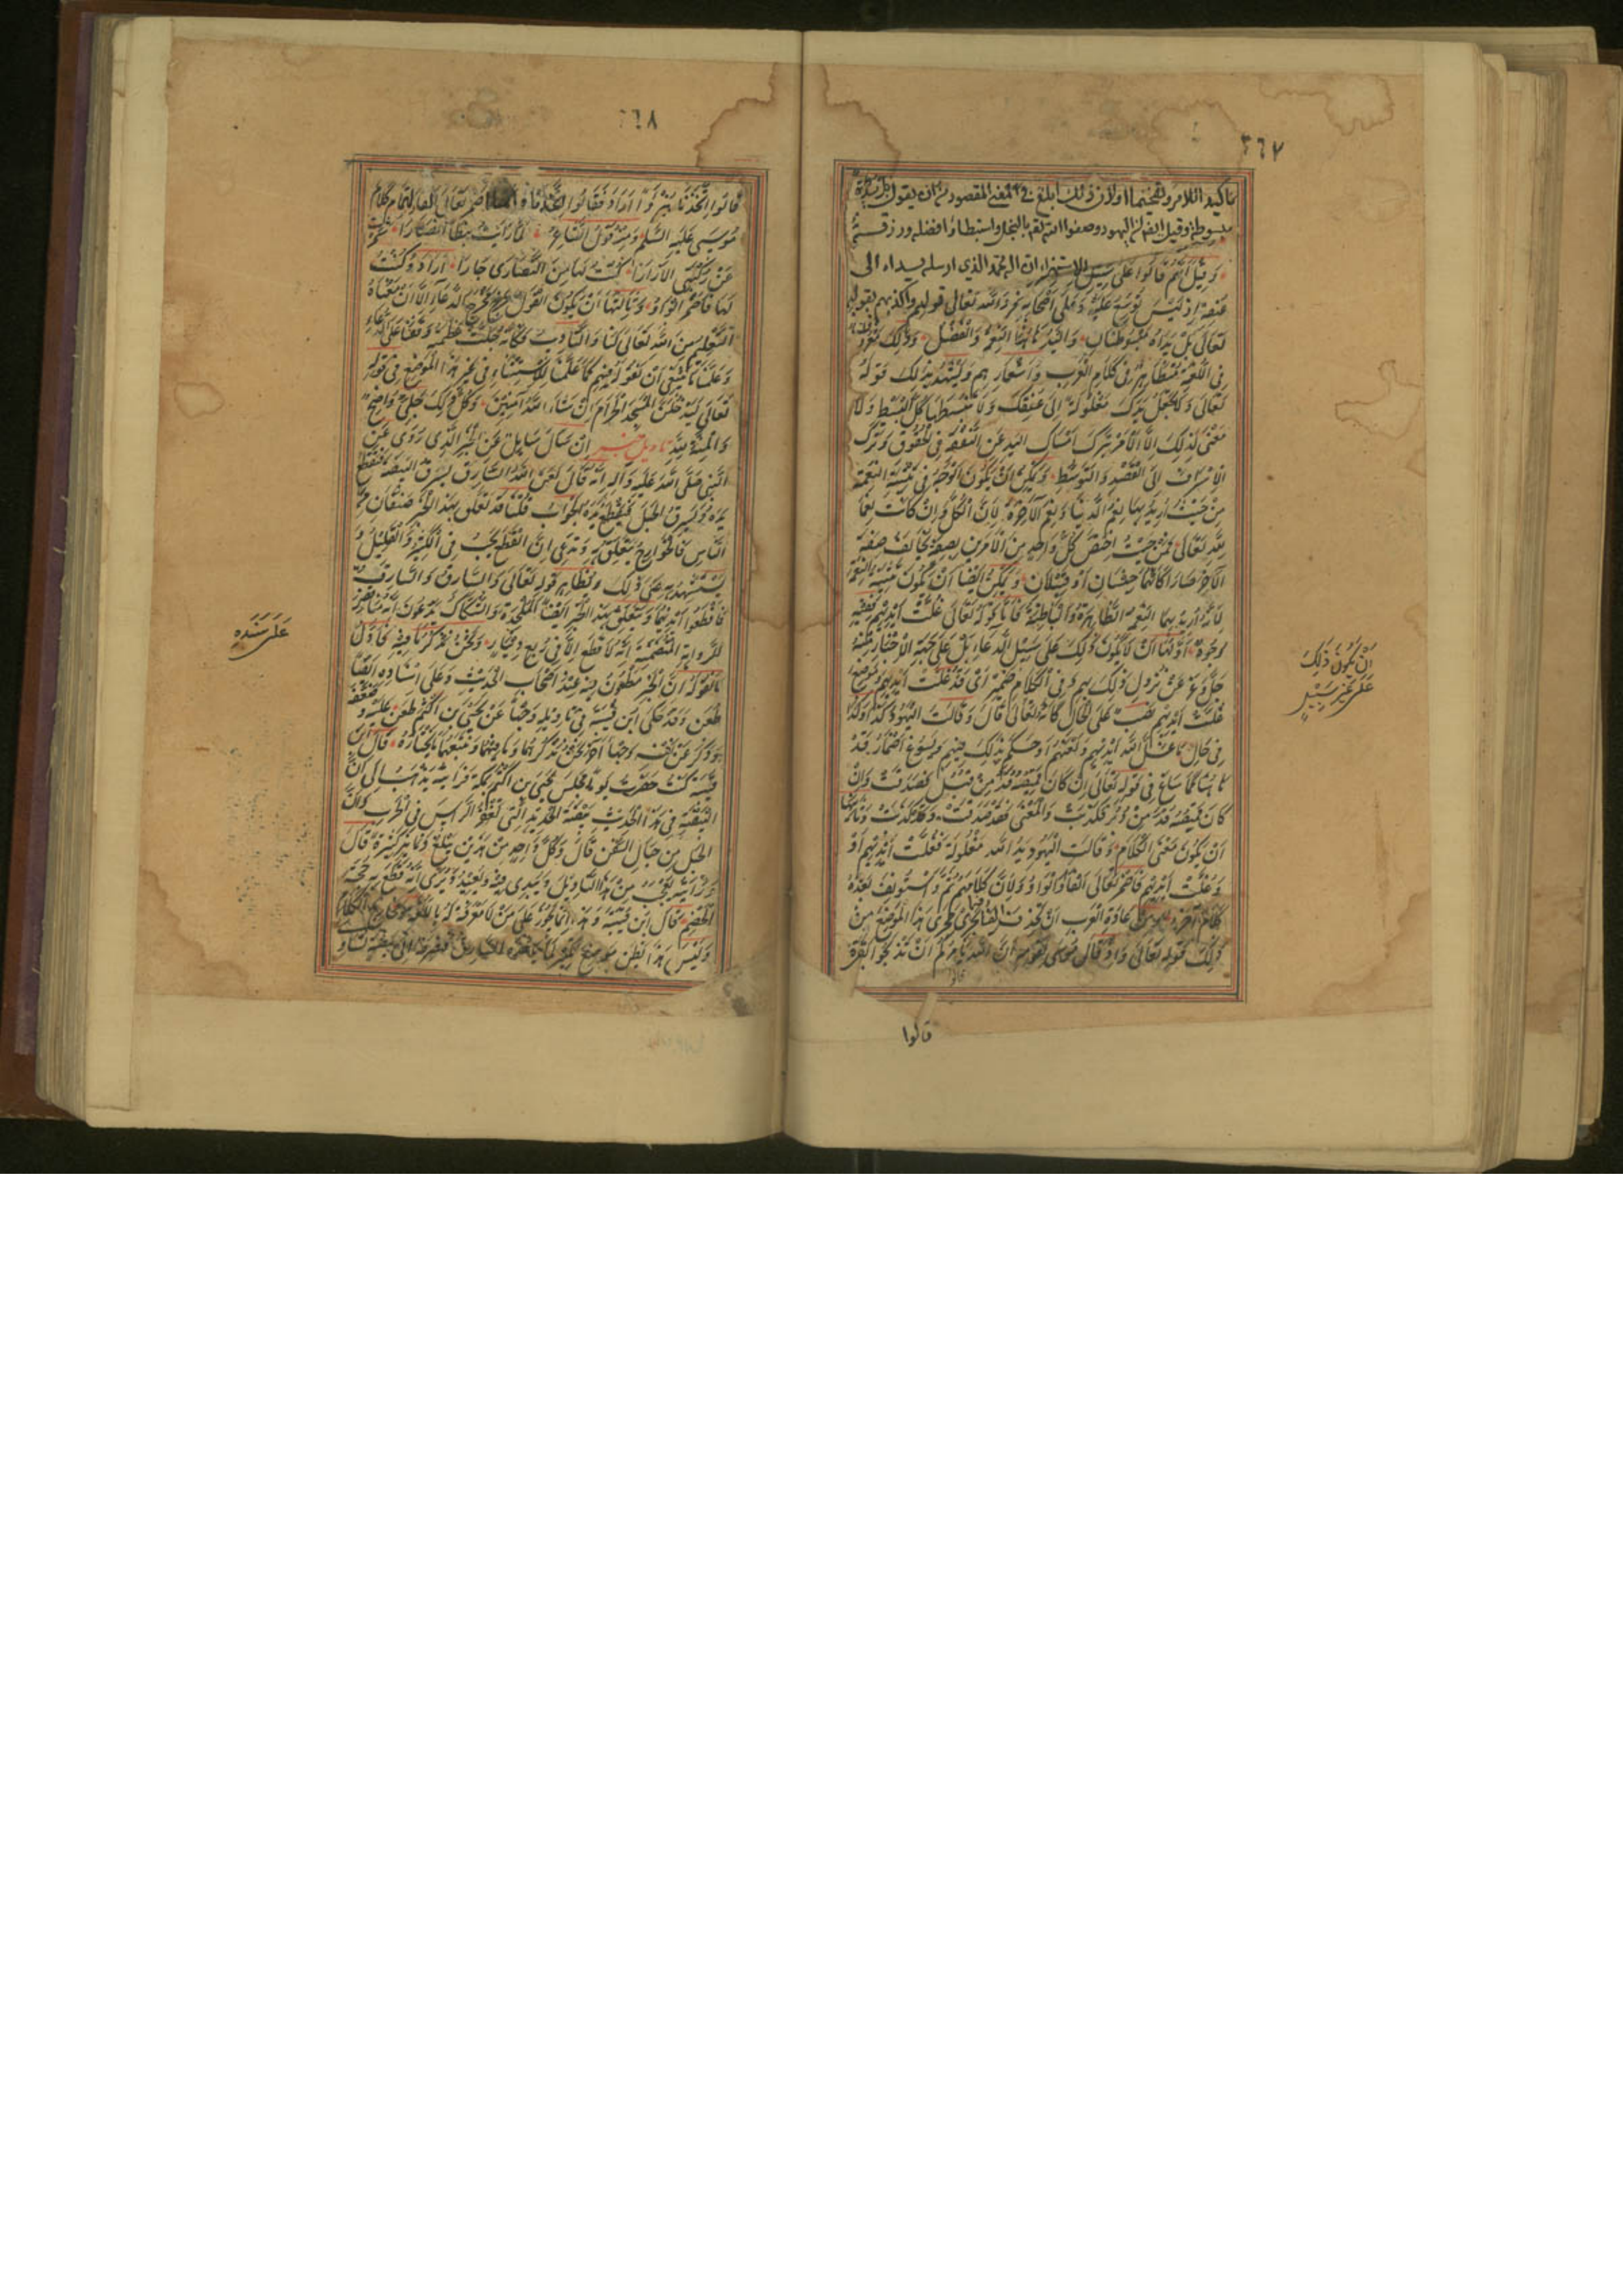 ٣٦٧
تاكيد الامر وتفخيما ولان ذلك ابلغ في المعنى المقصود من ان يقول بل يده
مبسوطة وقيل ايضا ان اليهود وصفوا الله تعالى بالبخل واستبطاوا فضله ورزقه
وَقِيلَ اِنَّهُمْ قَالُوا عَلَى سَبِيلِ الاستهزاء ان اله محمد الذي ارسله يداه الى
عنقه اِذْ لَيْسَ يُوَسِّعُ عَلَيْهِ وَعَلَى اَصْحَابِهِ فرد الله تعالى قولهم واكذبهم بقوله
تَعَالَى بَلْ يَدَاهُ مَبْسُوطَتَانِ وَالْيَدُ هَاهُنَا النِّعَمُ وَالْفَضْلُ وَذٰلِكَ مَعْرُوفٌ
فِي اللُّغَةِ مُتَظَاهِرٌ فِي كَلَامِ الْعَرَبِ وَاَشْعَارِهِمْ وَيَشْهَدُ لِذٰلِكَ قَوْلُهُ
تَعَالَى وَلَا تَجْعَلْ يَدَكَ مَغْلُولَةً اِلَى عُنُقِكَ وَلَا تَبْسُطْهَا كُلَّ الْبَسْطِ وَلَا
مَعْنَى لِذٰلِكَ اِلَّا الْاَمْرُ بِتَرْكِ اِمْسَاكِ الْيَدِ عَنِ النَّفَقَةِ فِي الْحُقُوقِ وَتَرْكِ
الْاِسْرَافِ اِلَى الْقَصْدِ وَالتَّوَسُّطِ وَيُمْكِنُ اَنْ يَكُونَ الْوَجْهُ فِي تَثْنِيَةِ النِّعْمَةِ
مِنْ حَيْثُ اُرِيدَ بِهَا نِعَمُ الدُّنْيَا وَنِعَمُ الْآخِرَةِ لِاَنَّ الْكُلَّ وَاِنْ كَانَتْ نِعَمًا
لِلّٰهِ تَعَالَى فَمِنْ حَيْثُ اخْتَصَّ كُلُّ وَاحِدٍ مِنَ الْاَمْرَيْنِ بِصِفَةٍ تُخَالِفُ صِفَةَ
الْآخَرِ صَارَا كَاَنَّهُمَا جِنْسَانِ اَوْ قَبِيلَانِ وَيُمْكِنُ اَيْضًا اَنْ يَكُونَ تَثْنِيَةُ النِّعَمِ
لِاَنَّهُ اُرِيدَ بِهَا النِّعَمُ الظَّاهِرَةُ وَالْبَاطِنَةُ فَاَمَّا قَوْلُهُ تَعَالَى غُلَّتْ اَيْدِيهِمْ فَفِيهِ
وُجُوهٌ اَوَّلُهَا اَنْ لَا يَكُونَ ذٰلِكَ عَلَى سَبِيلِ الدُّعَاءِ بَلْ عَلَى جِهَةِ الْاِخْبَارِ مِنْهُ
جَلَّ وَعَزَّ عَنْ نُزُولِ ذٰلِكَ بِهِمْ وَفِي الْكَلَامِ ضَمِيرُ اَيْ وَقَدْ غُلَّتْ اَيْدِيهِمْ وَمَوْضِعُ
غُلَّتْ اَيْدِيهِمْ نَصْبٌ عَلَى الْحَالِ كَاَنَّهُ تَعَالَى قَالَ وَقَالَتِ الْيَهُودُ كَذَا وَكَذَا
فِي حَالِ مَا غَلَّ اللهُ اَيْدِيَهُمْ وَلَعَنَهُمْ اَوْ حَكَمَ بِذٰلِكَ فِيهِمْ وَيَسُوغُ اِضْمَارُ قَدْ
هَاهُنَا كَمَا سَاغَ فِي قَوْلِهِ تَعَالَى اِنْ كَانَ قَمِيصُهُ قُدَّ مِنْ قُبُلٍ فَصَدَقَتْ وَاِنْ
كَانَ قَمِيصُهُ قُدَّ مِنْ دُبُرٍ فَكَذَبَتْ وَالْمَعْنَى فَقَدْ صَدَقَتْ وَقَدْ كَذَبَتْ وَثَانِيهَا
اَنْ يَكُونَ مَعْنَى الْكَلَامِ وَقَالَتِ الْيَهُودُ يَدُ اللهِ مَغْلُولَةٌ فَغُلَّتْ اَيْدِيهِمْ اَوْ
وَغُلَّتْ اَيْدِيهِمْ فَاَضْمَرَ تَعَالَى الْفَاءَ وَالْوَاوَ لِاَنَّ كَلَامَهُمْ تَمَّ وَاسْتُؤْنِفَ بَعْدَهُ
كَلَامٌ آخَرُ وَمِنْ عَادَةِ الْعَرَبِ اَنْ تَحْذِفَ فِيمَا يَجْرِي مَجْرَى هٰذَا الْمَوْضِعِ مِنْ
ذٰلِكَ قَوْلُهُ تَعَالَى وَاِذْ قَالَ مُوسَى لِقَوْمِهِ اِنَّ اللهَ يَاْمُرُكُمْ اَنْ تَذْبَحُوا بَقَرَةً
قالوا
اَنْ يَكُونَ ذٰلِكَ
عَلَى غَيْرِ سَبِيْلِ
٦٨
قَالُوا اَتَتَّخِذُنَا هُزُوًا اَرَادَ فَقَالُوا اَتَتَّخِذُنَا فَاَضْمَرَ تَعَالَى الْفَاءَ لِتَمَامِ كَلَامِ
مُوسَى عَلَيْهِ السَّلَمُ وَمِنْهُ قَوْلُ الشَّاعِرِ لَمَّا رَاَيْتُ نَبَطًا اَنْصَارًا شَمَّرْتُ
عَنْ رُكْبَتِيَ الْاِزَارَا كُنْتُ لَهَا مِنَ النَّصَارَى جَارًا اَرَادَ وَكُنْتُ
لَهَا فَاَضْمَرَ الْوَاوَ وَثَالِثُهَا اَنْ يَكُونَ الْقَوْلُ خَرَجَ مَخْرَجَ الدُّعَاءِ اِلَّا اَنَّ مَعْنَاهُ
التَّعْلِيمُ مِنَ اللهِ تَعَالَى لَنَا وَالتَّاْدِيبُ فَكَاَنَّهُ جَلَّتْ عَظَمَتُهُ وَقَفَنَا عَلَى الدُّعَاءِ
وَعَلَّمَنَا مَا يَنْبَغِي اَنْ نَقُولَ فِيهِمْ كَمَا عَلَّمَنَا الْاِسْتِثْنَاءَ فِي غَيْرِ هٰذَا الْمَوْضِعِ فِي قَوْلِهِ
تَعَالَى لَتَدْخُلُنَّ الْمَسْجِدَ الْحَرَامَ اِنْ شَاءَ اللهُ آمِنِينَ وَكُلُّ ذٰلِكَ جَلِيٌّ وَاضِحٌ
وَالْمِنَّةُ لِلّٰهِ تاويل خبر اِنْ سَاَلَ سَائِلٌ عَنِ الْخَبَرِ الَّذِي رُوِيَ عَنِ
النَّبِيِّ صَلَّى اللهُ عَلَيْهِ وَآلِهِ اَنَّهُ قَالَ لَعَنَ اللهُ السَّارِقَ يَسْرِقُ الْبَيْضَةَ فَتُقْطَعُ
يَدُهُ وَيَسْرِقُ الْحَبْلَ فَتُقْطَعُ يَدُهُ الْجَوَابُ قُلْنَا قَدْ تَعَلَّقَ بِهٰذَا الْخَبَرِ صِنْفَانِ مِنَ
النَّاسِ فَالْخَوَارِجُ تَتَعَلَّقُ بِهِ وَتَدَّعِي اَنَّ الْقَطْعَ يَجِبُ فِي الْكَثِيرِ وَالْقَلِيلِ وَ
يَسْتَشْهِدُ بِهِ عَلَى ذٰلِكَ وَبِظَاهِرِ قَوْلِهِ تَعَالَى وَالسَّارِقُ وَالسَّارِقَةُ
فَاقْطَعُوا اَيْدِيَهُمَا وَيَتَعَلَّقُ بِهٰذَا الْخَبَرِ اَيْضًا الْمُلْحِدَةُ وَالشُّكَّاكُ وَيَدَّعُونَ اَنَّهُ مُنَاقِضٌ
لِلرِّوَايَةِ الْمُتَضَمِّنَةِ اَنَّهُ لَا قَطْعَ اِلَّا فِي رُبْعِ دِينَارٍ وَنَحْنُ نَذْكُرُ مَا فِيهِ فَاَوَّلُ
مَا نَقُولُهُ اَنَّ الْخَبَرَ مَطْعُونٌ فِيهِ عِنْدَ اَصْحَابِ الْحَدِيثِ وَعَلَى اِسْنَادِهِ اَيْضًا
طَعْنٌ وَقَدْ حَكَى ابْنُ قُتَيْبَةَ فِي تَاْوِيلِهِ وَجْهًا عَنْ يَحْيَى بْنِ اَكْثَمَ طَعَنَ عَلَيْهِ وَضَعَّفَهُ
وَذَكَرَ عَنْ نَفْسِهِ وَجْهًا آخَرَ نَحْنُ نَذْكُرُهُمَا وَمَا فِيهِمَا وَنُتْبِعُهُمَا بِمَا نَخْتَارُهُ قَالَ ابْنُ
قُتَيْبَةَ كُنْتُ حَضَرْتُ يَوْمًا مَجْلِسَ يَحْيَى بْنِ اَكْثَمَ بِمَكَّةَ فَرَاَيْتُهُ يَذْهَبُ اِلَى اَنَّ
الْبَيْضَةَ فِي هٰذَا الْحَدِيثِ بَيْضَةُ الْحَدِيدِ الَّتِي تَغْفِرُ الرَّاْسَ فِي الْحَرْبِ وَاَنَّ
الْحَبْلَ مِنْ حِبَالِ السُّفُنِ قَالَ وَكُلُّ وَاحِدٍ مِنْ هٰذَيْنِ يَبْلُغُ دَنَانِيرَ كَثِيرَةً قَالَ
وَرَاَيْتُهُ يَعْجَبُ مِنْ هٰذَا التَّاْوِيلِ وَيُبْدِي فِيهِ وَيُعِيدُ وَيَرَى اَنَّهُ قَطَعَ بِهِ حُجَّةَ
الْخَصْمِ قَالَ ابْنُ قُتَيْبَةَ وَهٰذَا اِنَّمَا يَجُوزُ عَلَى مَنْ لَا مَعْرِفَةَ لَهُ بِاللُّغَةِ وَمَخَارِجِ الْكَلَامِ
وَلَيْسَ هٰذَا مَوْضِعَ تَكْثِيرٍ لِمَا يَاْخُذُهُ السَّارِقُ فَيَصْرِفَهُ اِلَى بَيْضَةٍ تُسَاوِي
عَلَى سَنَدِهِ